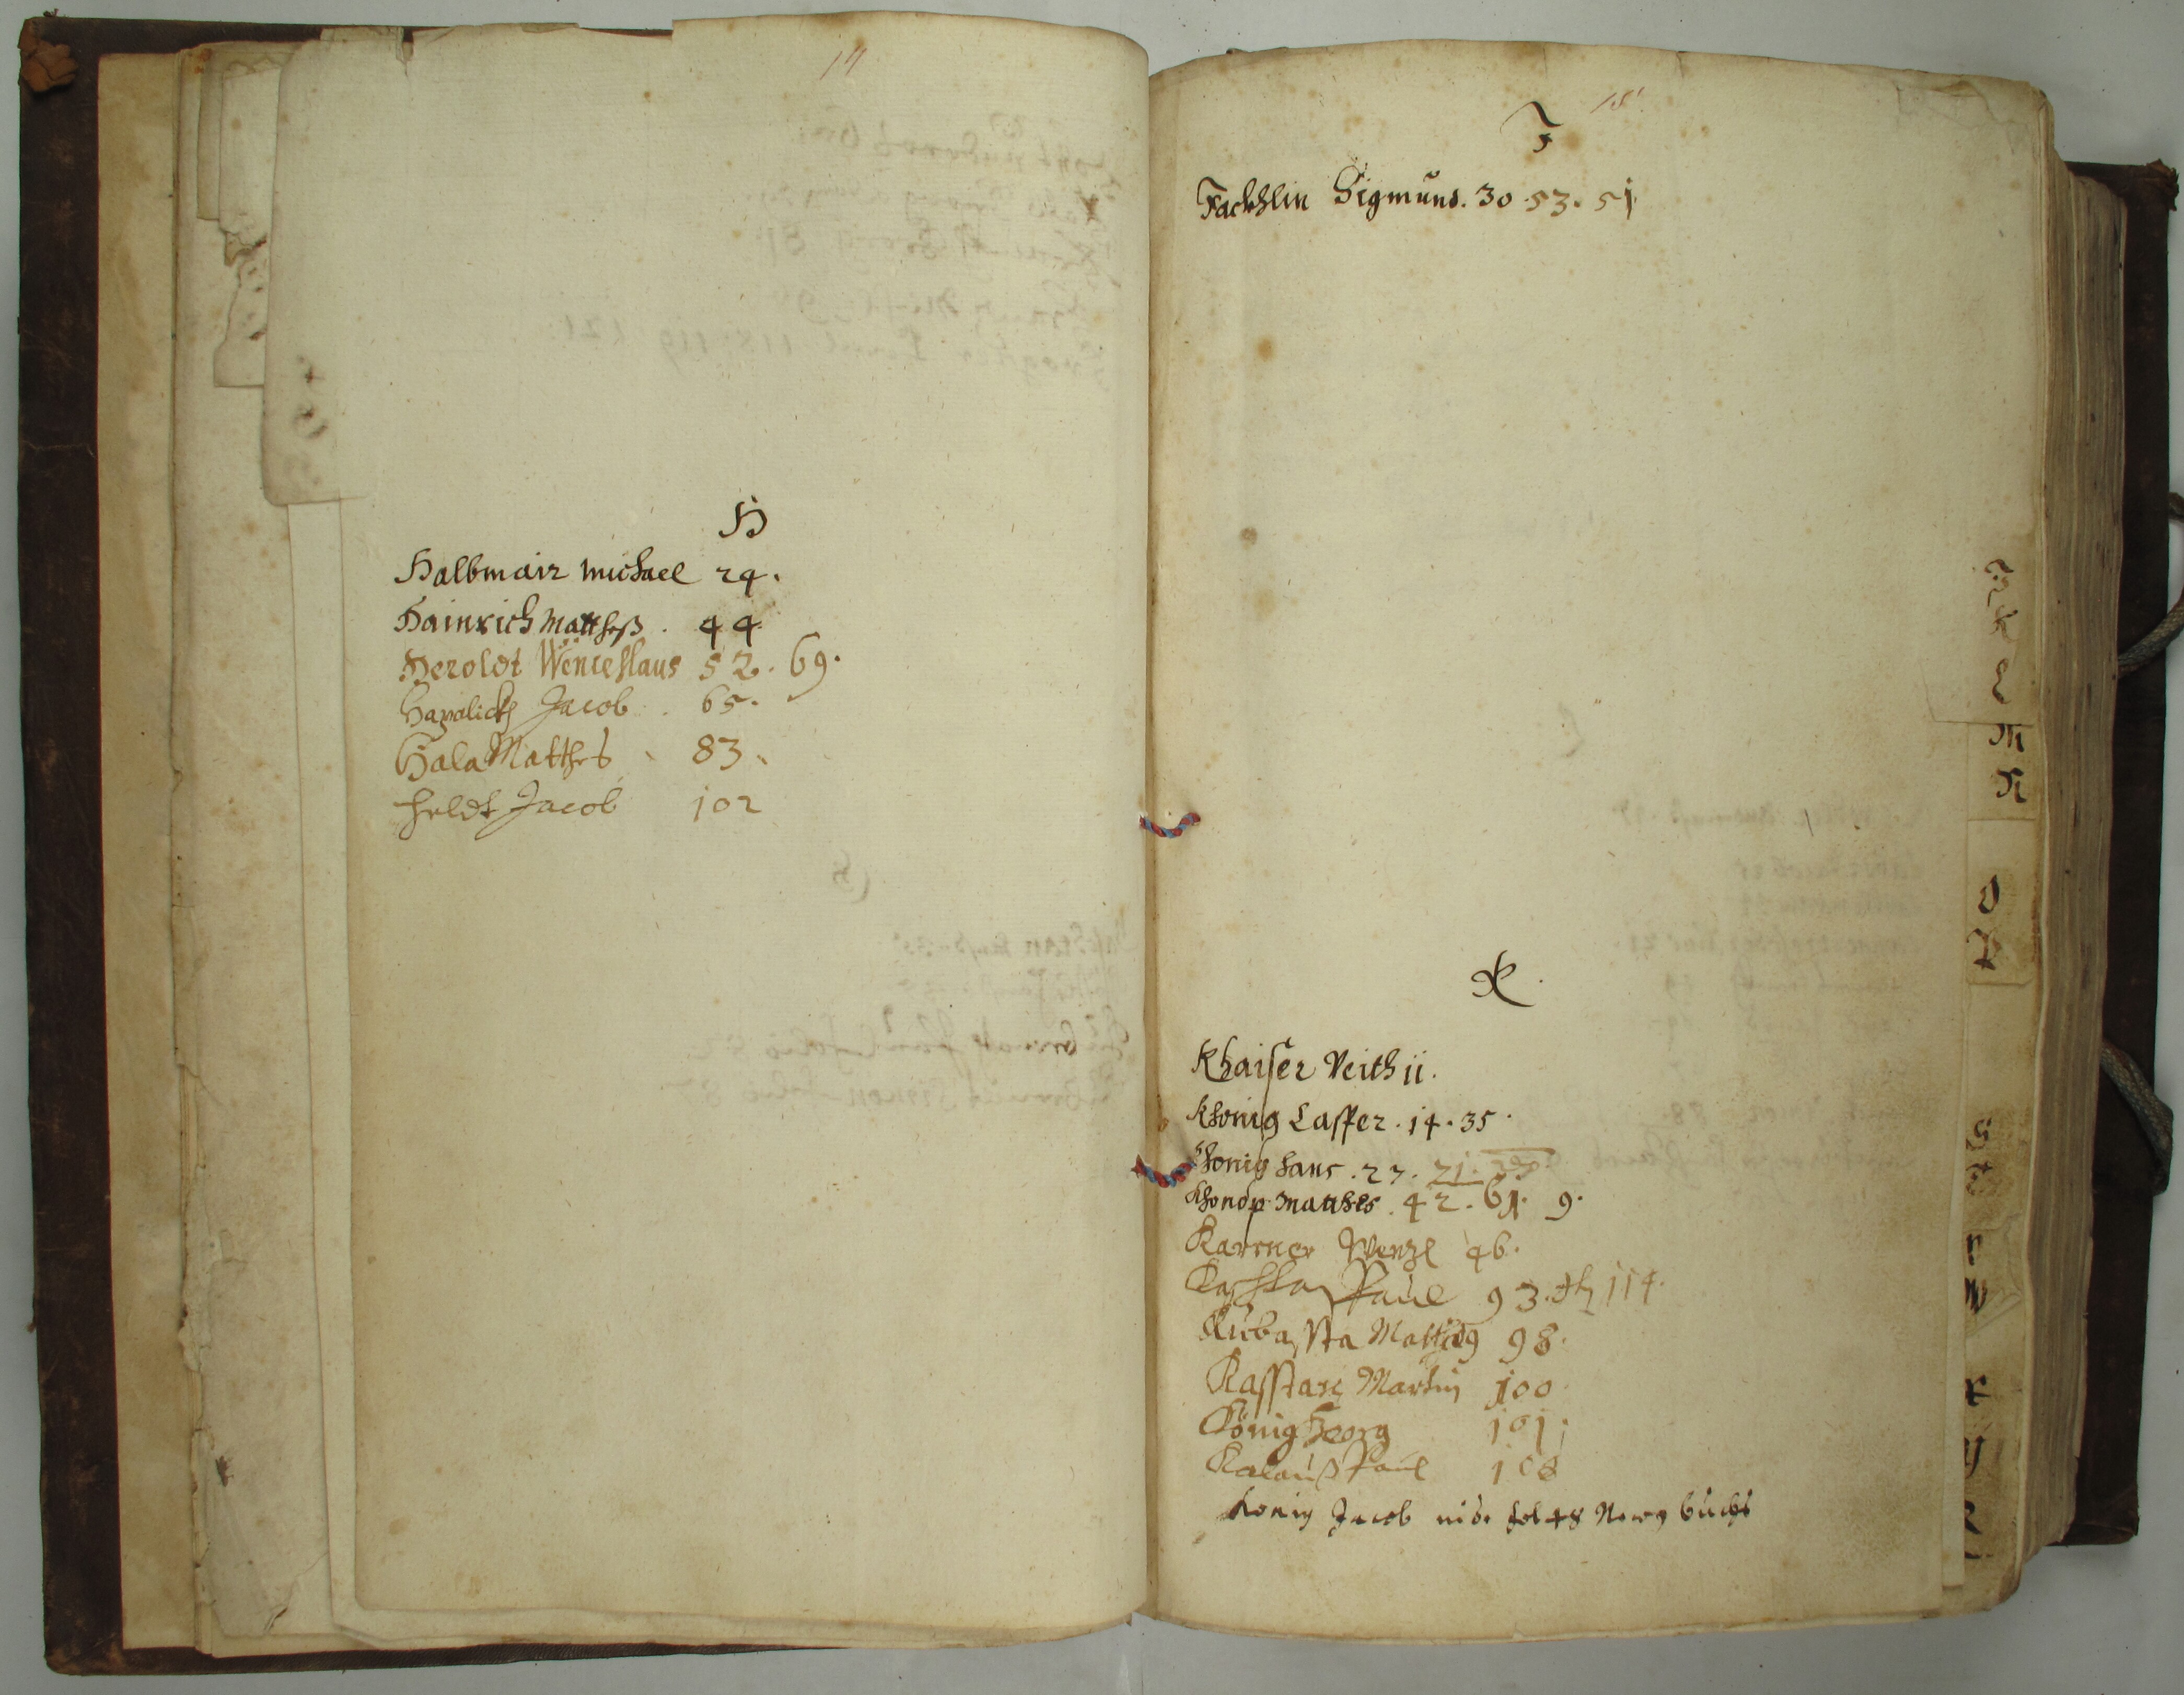 14
H
Halbmair Michael 24.
Hainrich Matthesß . 44
Heroldt Wenceslaus 52. 69.
Havalickh Jacob . 65.
Hala Matthes . 83.
Heldt Jacob 102
15
J
Jackhlin Sigmund. 30 53. 51
K.
Khaiser Veith 11.
Khonig Casper . 14 . 35 .
Khonig Hans . 27. 21.
Khonop Matthes . 42 . 61. 9.
Karrner Wenzl 46.
Paul 93. 114.
Kubassta 98.
Martin 100
König Georg 101.
Kalauß Paul 108
Konig Jacob vide fol 48 buchs
J
K
L
M
N
O
P
S
T
V
W
X
Y
Z